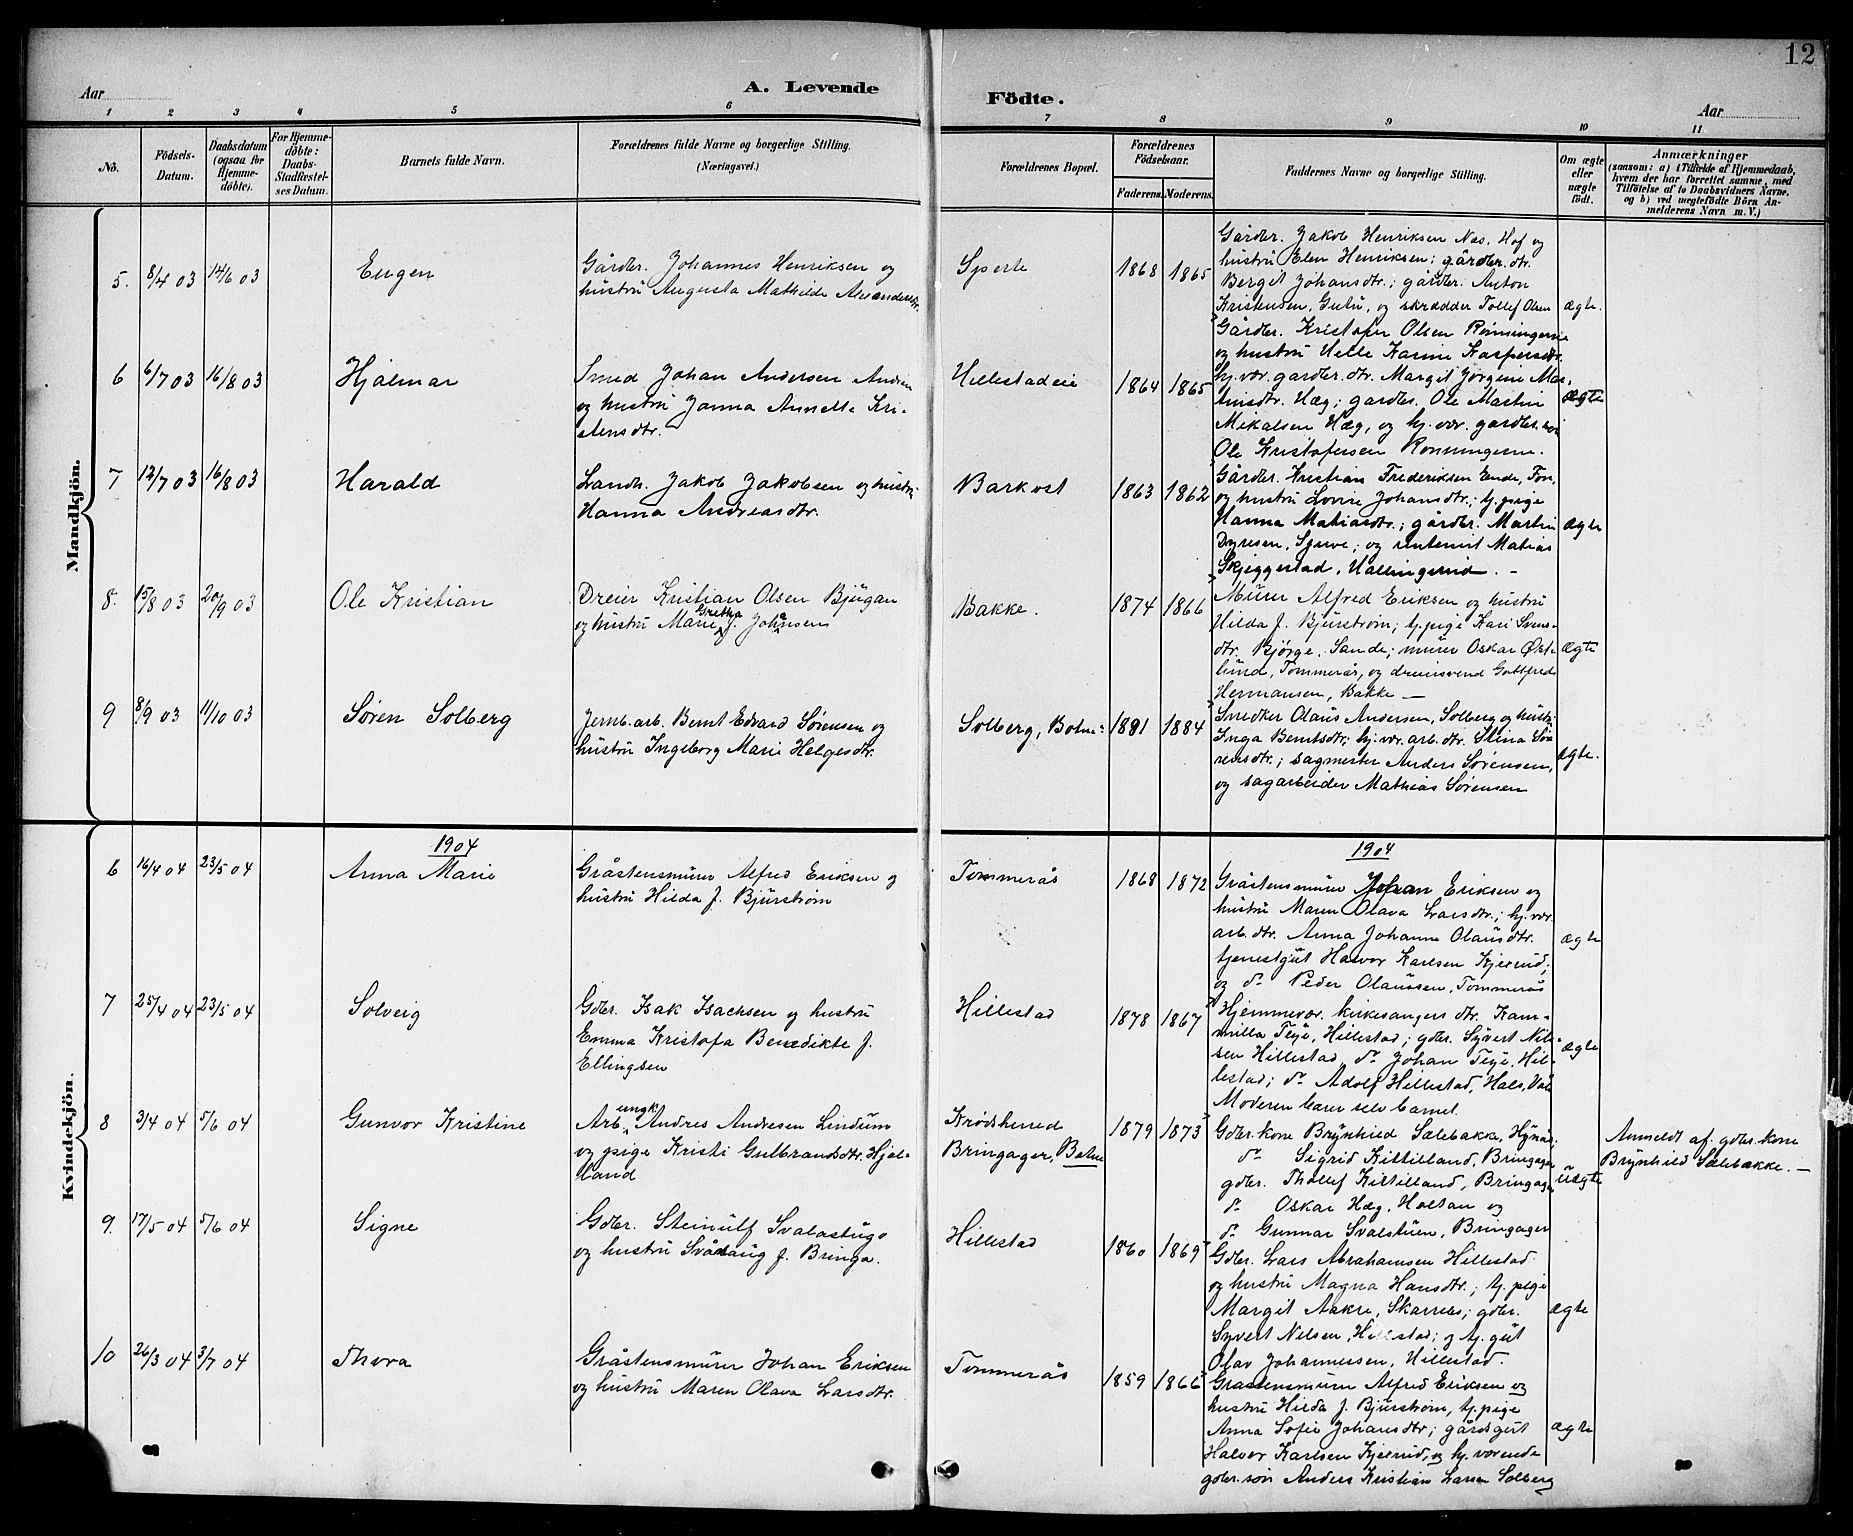 12
A. Levende Födte.
Aar
Aar
1 2 3 4 5 6 7 8 9 10 11
No.
Födsels-Datum.
Daabsdatum (ogsaa for Hjemmedöbte).
For Hjemmedöbte: Daabs-Stadfestelses Datum.
Barnets fulde Navn.
Forældrenes fulde Navne og borgerlige Stilling. (Næringsvei.)
Forældrenes Bopæl.
Forældrenes Födselsaar.
Faderens. Moderens.
Faddernes Navne og borgerlige Stilling.
Om ægte eller uægte födt.
Anmærkninger
(saasom: a) i Tilfælde af Hjemmedaab, hvem der har forrettet samme, med Tilföielse af to Daabsvidners Navne, og b) ved uægtefödte Börn Anmelderens Navn m. V.)
Mandkjön.
5. 8/4 03 14/6 03 Eugen
Gårdbr. Johannes Henriksen og
hustru Augusta Mathilde
Sperte 1868 1865
Gårdbr. Jakob Henriksen Nes, Hof og
hustru Elen Henriksen; gårdbr. dtr.
Bergit Johansdtr.; gårdbr. Anton
Kristensen, Gutu, og skrædder Tollef Olsen
ægte.
6 6/7 03 16/8 03 Hjalmar
Smed Johan Andersen
og hustru Janna Annette Kri-
stensdtr.
Hillestadeie 1864 1865
Gårdbr. Kristofer Olsen Rønningerne
og hustru Helle Karine Kaspersdtr.
hj. vær. gardbr. dtr. Margit Jørgine Mar-
tinsdtr. Hæg; gardbr. Ole Martin
Mikalsen Hæg, og hj. vær. gardbr. søn
Ole Kristofersen Rønningerne.
ægte
7 12/7 03 16/8 03 Harald
Landh. Jakob Jakobsen og hustru
Hanna Andreasdtr.
Barkost 1863 1862
Gårdbr. Kristian Frederiksen Ende, Fon,
og hustru Lovise Johansdtr.; tj. pige
Hanna Matiasdtr.; gårdbr. Martin
Dyresen, og Matias
Skjeggestad, Hallingsrud. –
ægte
8. 15/8 03 20/9 03 Ole Kristian
Dreier Kristian Olsen Bjugan
og hustru Marie Gretha f. Johnsen
Bakke. 1874 1866
Murer Alfred Eriksen og hustru
Hilda f. Bjurstrøm; tj. pige Kari Svens-
dtr. Bjørge, Sande; murer Oskar Øst-
lund, Tommerås, og dreiersvend Gottfred
Hermansen, Bakke –
ægte
9 8/9 03 11/10 03 Søren Solberg
Jernb. arb. Bernt Edvard Sørensen og
hustru Ingeborg Marie Helgesdtr.
Solberg, Botne 1881 1884
Snedker Olaus Andersen, Solberg og hustru
Inga Berntsdtr; hj. vær. arb. dtr. Stina Sø-
rensdtr.; sagmester Anders Sørensen,
og sagarbeider Mathias Sørensen
ægte.
Kvindekjön.
1904
1904
6 16/4 04 23/5 04 Anna Marie
Gråstensmurer Alfred Eriksen og
hustru Hilda f. Bjurstrøm
Tommerås 1868 1872
Gråstensmurer Johan Eriksen og
hustru Maren Olava Larsdtr.; hj. vær.
arb. dtr. Anna Johanne Olausdtr.
tjenestgut Halvor Karlsen Kjerrud;
og do Peder Olaussen, Tommerås
ægte
7 25/4 04 23/5 04 Solveig
Gdbr. Isak Isachsen og hustru
Emma Kristofa Benedikte f.
Ellingsen
Hillestad 1878 1867
Hjemmevær. kirkesangers dtr. Kam-
milla Teje, Hillestad; gdbr. Syvert Nil-
sen Hillestad, do Johan Teje, Hil-
lestad; do Adolf Hillestad, Hals, Vå
Moderen bærer selv barnet.
ægte
8 3/4 04 5/6 04 Gunvor Kristine
Arb. ungk. Andres Andresen Lindum
og pige Kristi Gulbrandsdtr. Hjel-
land
Krødsherred
Bringager, Botne
1879 1873
Gdbr. kone Brynhild Sælebakke, Hynås.
do Sigrid Kittilland, Bringager
gdbr. Thollef Kittilland, Bringager
do Oskar Hæg, Holtan og
do Gunnar Svalstuen, Bringager
uægte
Anmeldt af gdbr. kone
Brynhild Sælebakke. –
9. 17/5 04 5/6 04 Signe
Gdbr. Steinulf Svalastugo
og hustru Svålaug f. Bringa.
Hillestad 1860 1869
Gdbr. Lars Abrahamsen Hillestad
og hustru Magna Hansdtr.; tj. pige
Margit Aakre, Skarrebs; gdbr.
Syvert Nilsen, Hillestad; og tj. gut
Olav Johannessen, Hillestad.
ægte
10 26/3 04 3/7 04 Thora
Gråstensmurer Johan Eriksen
og hustru Maren Olava Larsdtr.
Tommerås 1859 1866
Gråstensmurer Alfred Eriksen og
hustru Hilda f. Bjurstrøm, tj. pige
Anna Sofie Johansdtr; gårdsgut
Halvor Karlsen Kjerrud, og hj. værende
gdbr. søn Anders Kristian Larsen Solberg
ægte